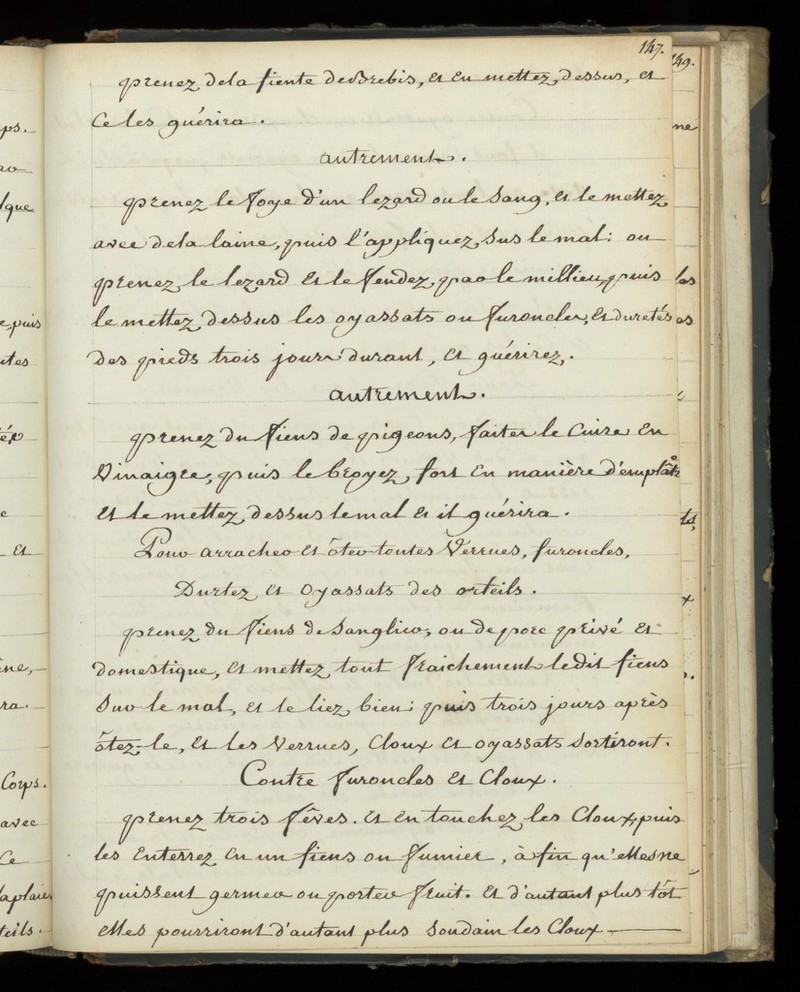 147.
prenez de la fiente de Brebis, et en mettez dessus, et
ce les guérira.
autrement.
prenez le foye d'un lezard ou le Sang, et le mettez
avec de la laine, puis l'appliquez sus le mal: ou
prenez le lezard et le fendez par le millieu, puis
le mettez dessus les oyassats ou furoncles, et duretés
des pieds trois jours durant, et guérirez.
autrement.
prenez du fiens de pigeons, faites le cuire en
Vinaigre, puis le broyez fort en manière d'emplâtre
et le mettez dessus le mal et il guérira.
Pour arracher et ôter toutes Verrues, furoncles,
Durtez et oyassats des orteils.
prenez du fiens de Sanglier, ou de porc privé et
domestique, et mettez tout fraichement ledit fiens
sur le mal, et le liez bien: puis trois jours après
ôtez-le, et les Verrues, Cloux et oyassats sortiront.
Contre furoncles et Cloux.
prenez trois fêves. et en touchez les Cloux, puis
les enterrez en un fiens ou fumier, à fin qu'elles ne
puissent germer ou porter fruit. et d'autant plus tôt
elles pourriront d'autant plus soudain les Cloux
ps.
que
puis
Corps.
avec
149.
ne
les